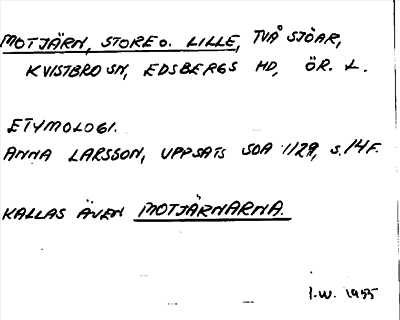 MOTJÄRN, STORE O. LILLE, TVÅ SJÖAR,
KVISTBRO SN, EDSBERGS HD, ÖR. L.
ETYMOLOGI.
ANNA LARSSON, UPPSATS SOA 1129, S. 14 F.
KALLAS ÄVEN MOTJÄRNARNA.
I.W. 1955